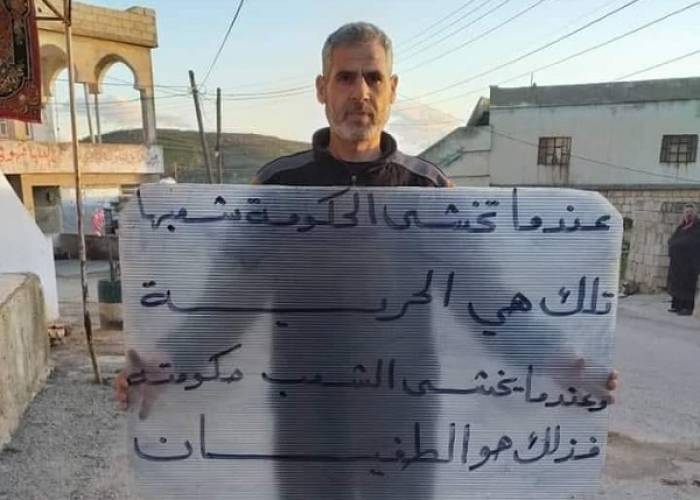 عندما تخشى الحكومة شعبها
تلك هي الحريـــــــة
وعندما يخشى الشعب حكومته
فذلك هو الطغيـــــان